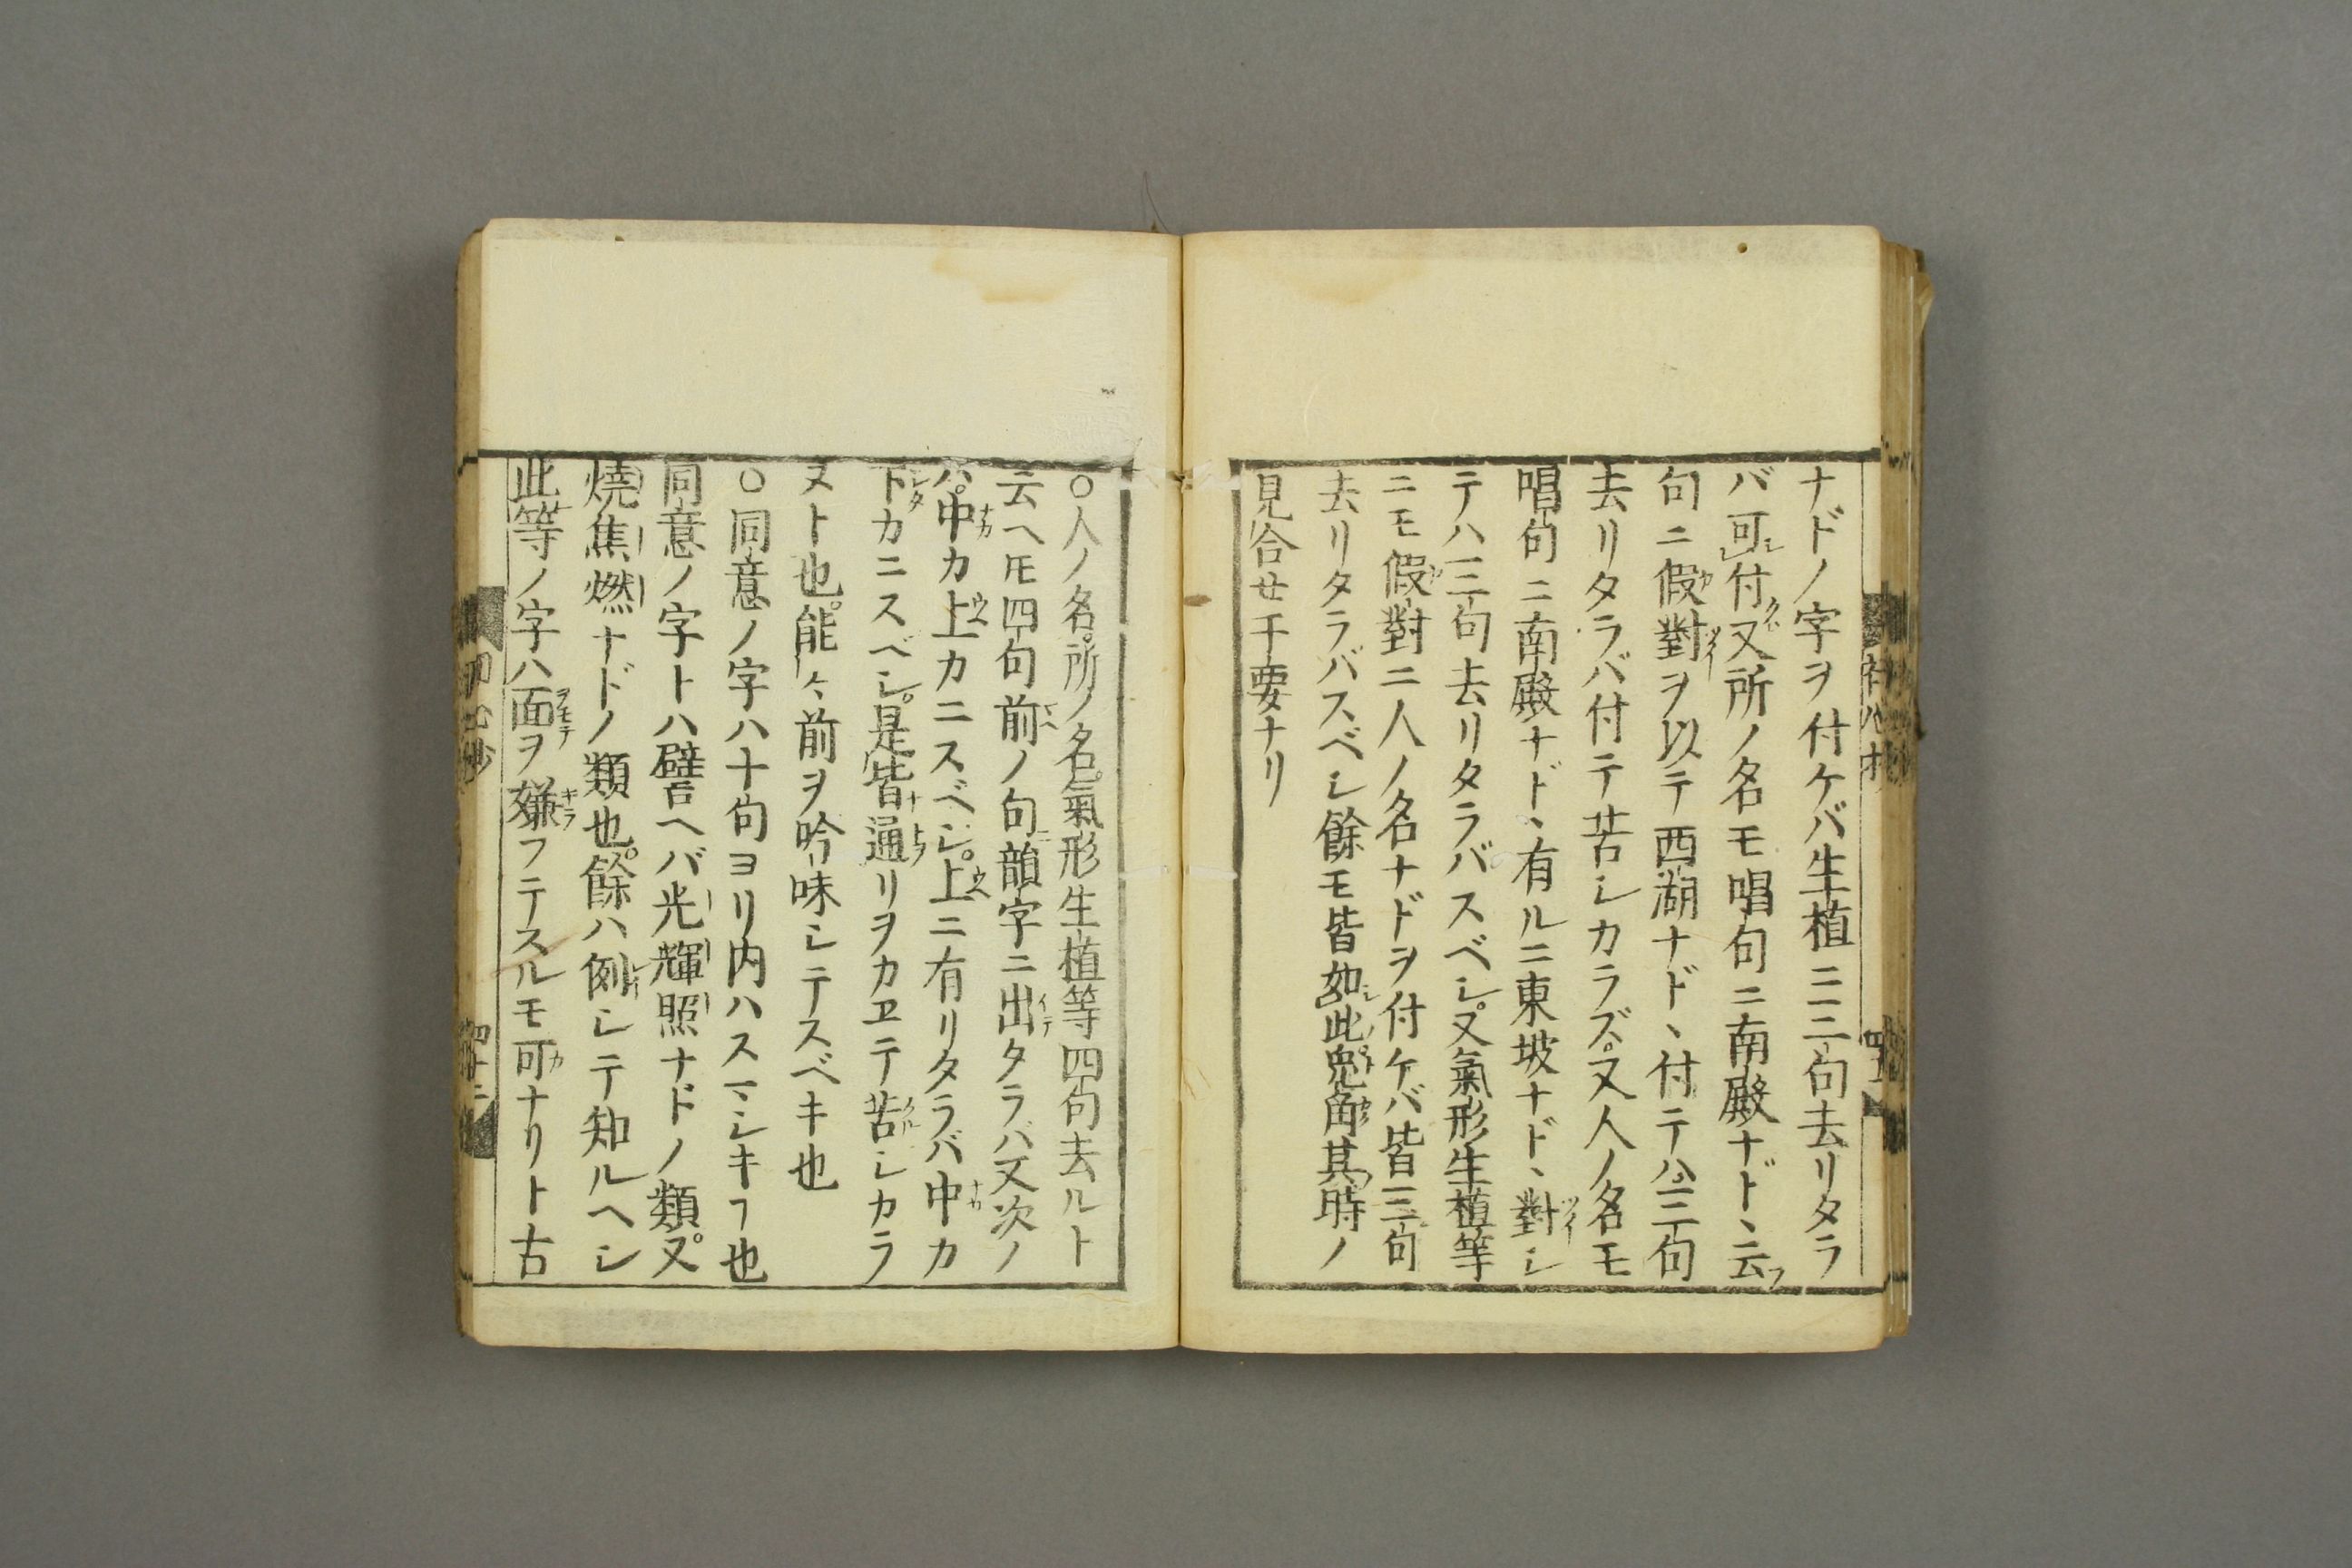 ナドノ字ヲ付ケバ生植ニ三句去リタラ
バ可付又所ノ名モ唱句ニ南殿ナドヽ云
句ニ假對ヲ以テ西湖ナドヽ付テハ三句
去リタラバ付テ苦シカラズ。又人ノ名モ
唱句ニ南殿ナドヽ有ルニ東坡ナドヽ對シ
テハ三句去リタラバスベシ。又氣形生植等
ニモ假對ニ人ノ名ナドヲ付ケバ皆三句
去リタラバスベシ餘モ皆如此兎角其時ノ
見合せ干要ナリ
○人ノ名。所ノ名。氣形生植等四句去ルト
云ヘ𪜈四句前ノ句韻字ニ出タラバ又次ノ
ハ。中カ上カニスベシ。上ニ有リタラバ中カ
下カニスベシ。是皆通リヲカヱテ苦シカラ
ヌト也。能々前ヲ吟味シテスベキ也
○同意ノ字ハ十句ヨリ内ハスマシキヿ也
同意ノ字トハ譬ヘバ光輝照ナドノ類。又
燒焦燃ナドノ類也。餘ハ例シテ知ルヘシ
此等ノ字ハ面ヲ嫌フテスルモ可ナリト古